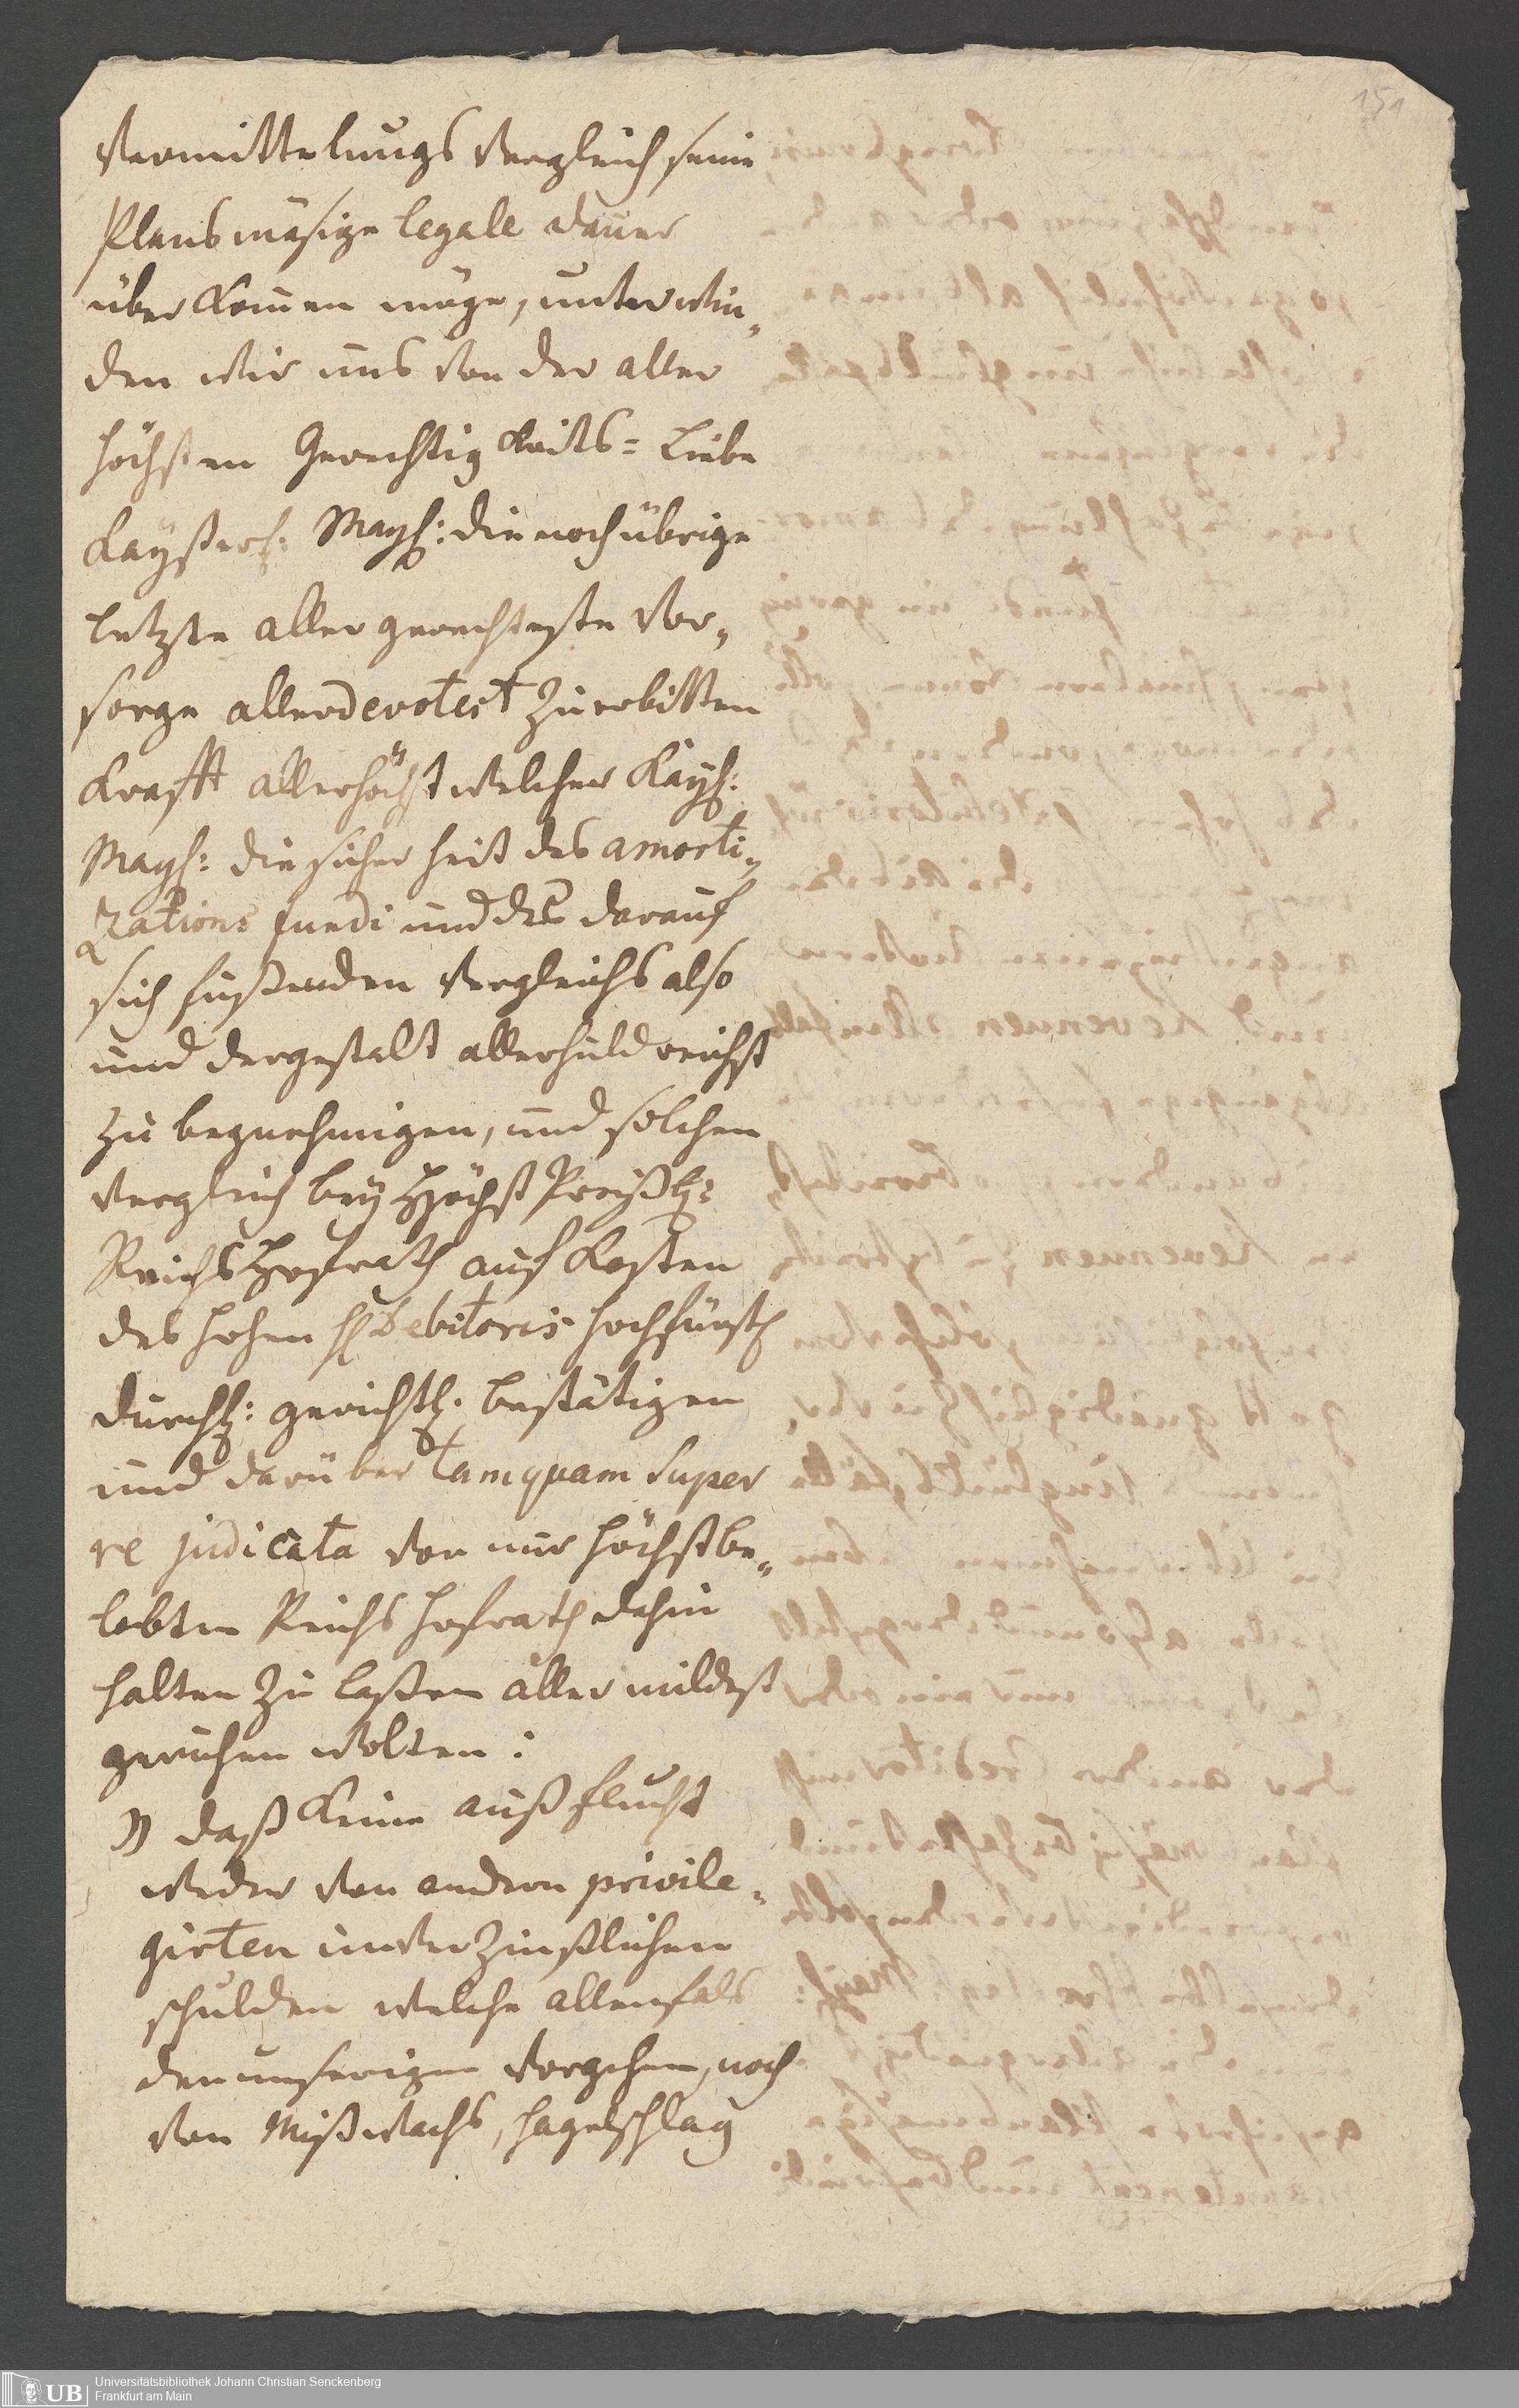 151
Vermittelungs Vergleich seine
Plans mäsige legale dauer
über kom̅en möge, unterwin„
den wir uns von der aller
höchsten Gerechtigkeits= Liebe
Kayßerl: Mayſ: die noch übrige
letzte allergerechteste Vor„
sorge allerdevotest zu erbitten
Krafft allerhöchst welcher Kayſ:
Mayſ: die sicherheit des amorti„
zations fundi und des darauf
sich fußenden Vergleichs also
und dergestalt allerhuldreichst
zu begnehmigen, und solchen
Vergleich bey Höchst Preißl:
Reichs Hofrath auf Kosten
des hohen H Debitoris hochfürstl
Durchl: gerichtl. bestätigen
und darüber tamquam super
re judicata von nur höchstbe„
lobten Reichs hofrath dahin
halten zu laßen allermildest
geruhen wolten:
1) daß keine außflucht
weder von andern privile„
girten unverzinßlichen
schulden welche allenfals
den unserigen vorgehen, noch
von Mißwachs, hagelschlag
UB
Universitätsbibliothek Johann Christian Senckenberg
Frankfurt am Main